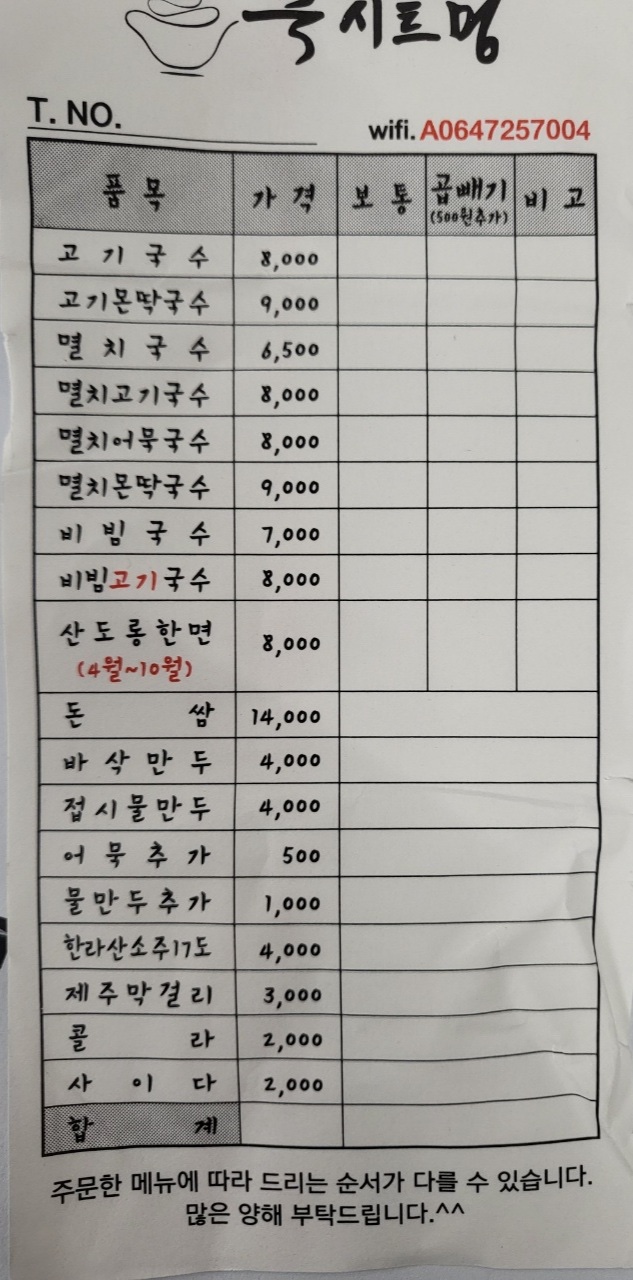 국시트멍
T. NO.
wifi. A0647257004
품목 가격 보통 곱빼기 비고
(500원추가)
고기국수 8,000
고기몬딱국수 9,000
멸치국수 6,500
멸치고기국수 8,000
멸치어묵국수 8,000
멸치몬딱국수 9,000
비빔국수 7,000
비빔고기국수 8,000
산도롱한면 8,000
(4월~10월)
돈쌈 14,000
바삭만두 4,000
접시물만두 4,000
어묵추가 500
물만두추가 1,000
한라산소주17도 4,000
제주막걸리 3,000
콜라 2,000
사이다 2,000
합계
주문한 메뉴에 따라 드리는 순서가 다를 수 있습니다.
많은 양해 부탁드립니다.^^